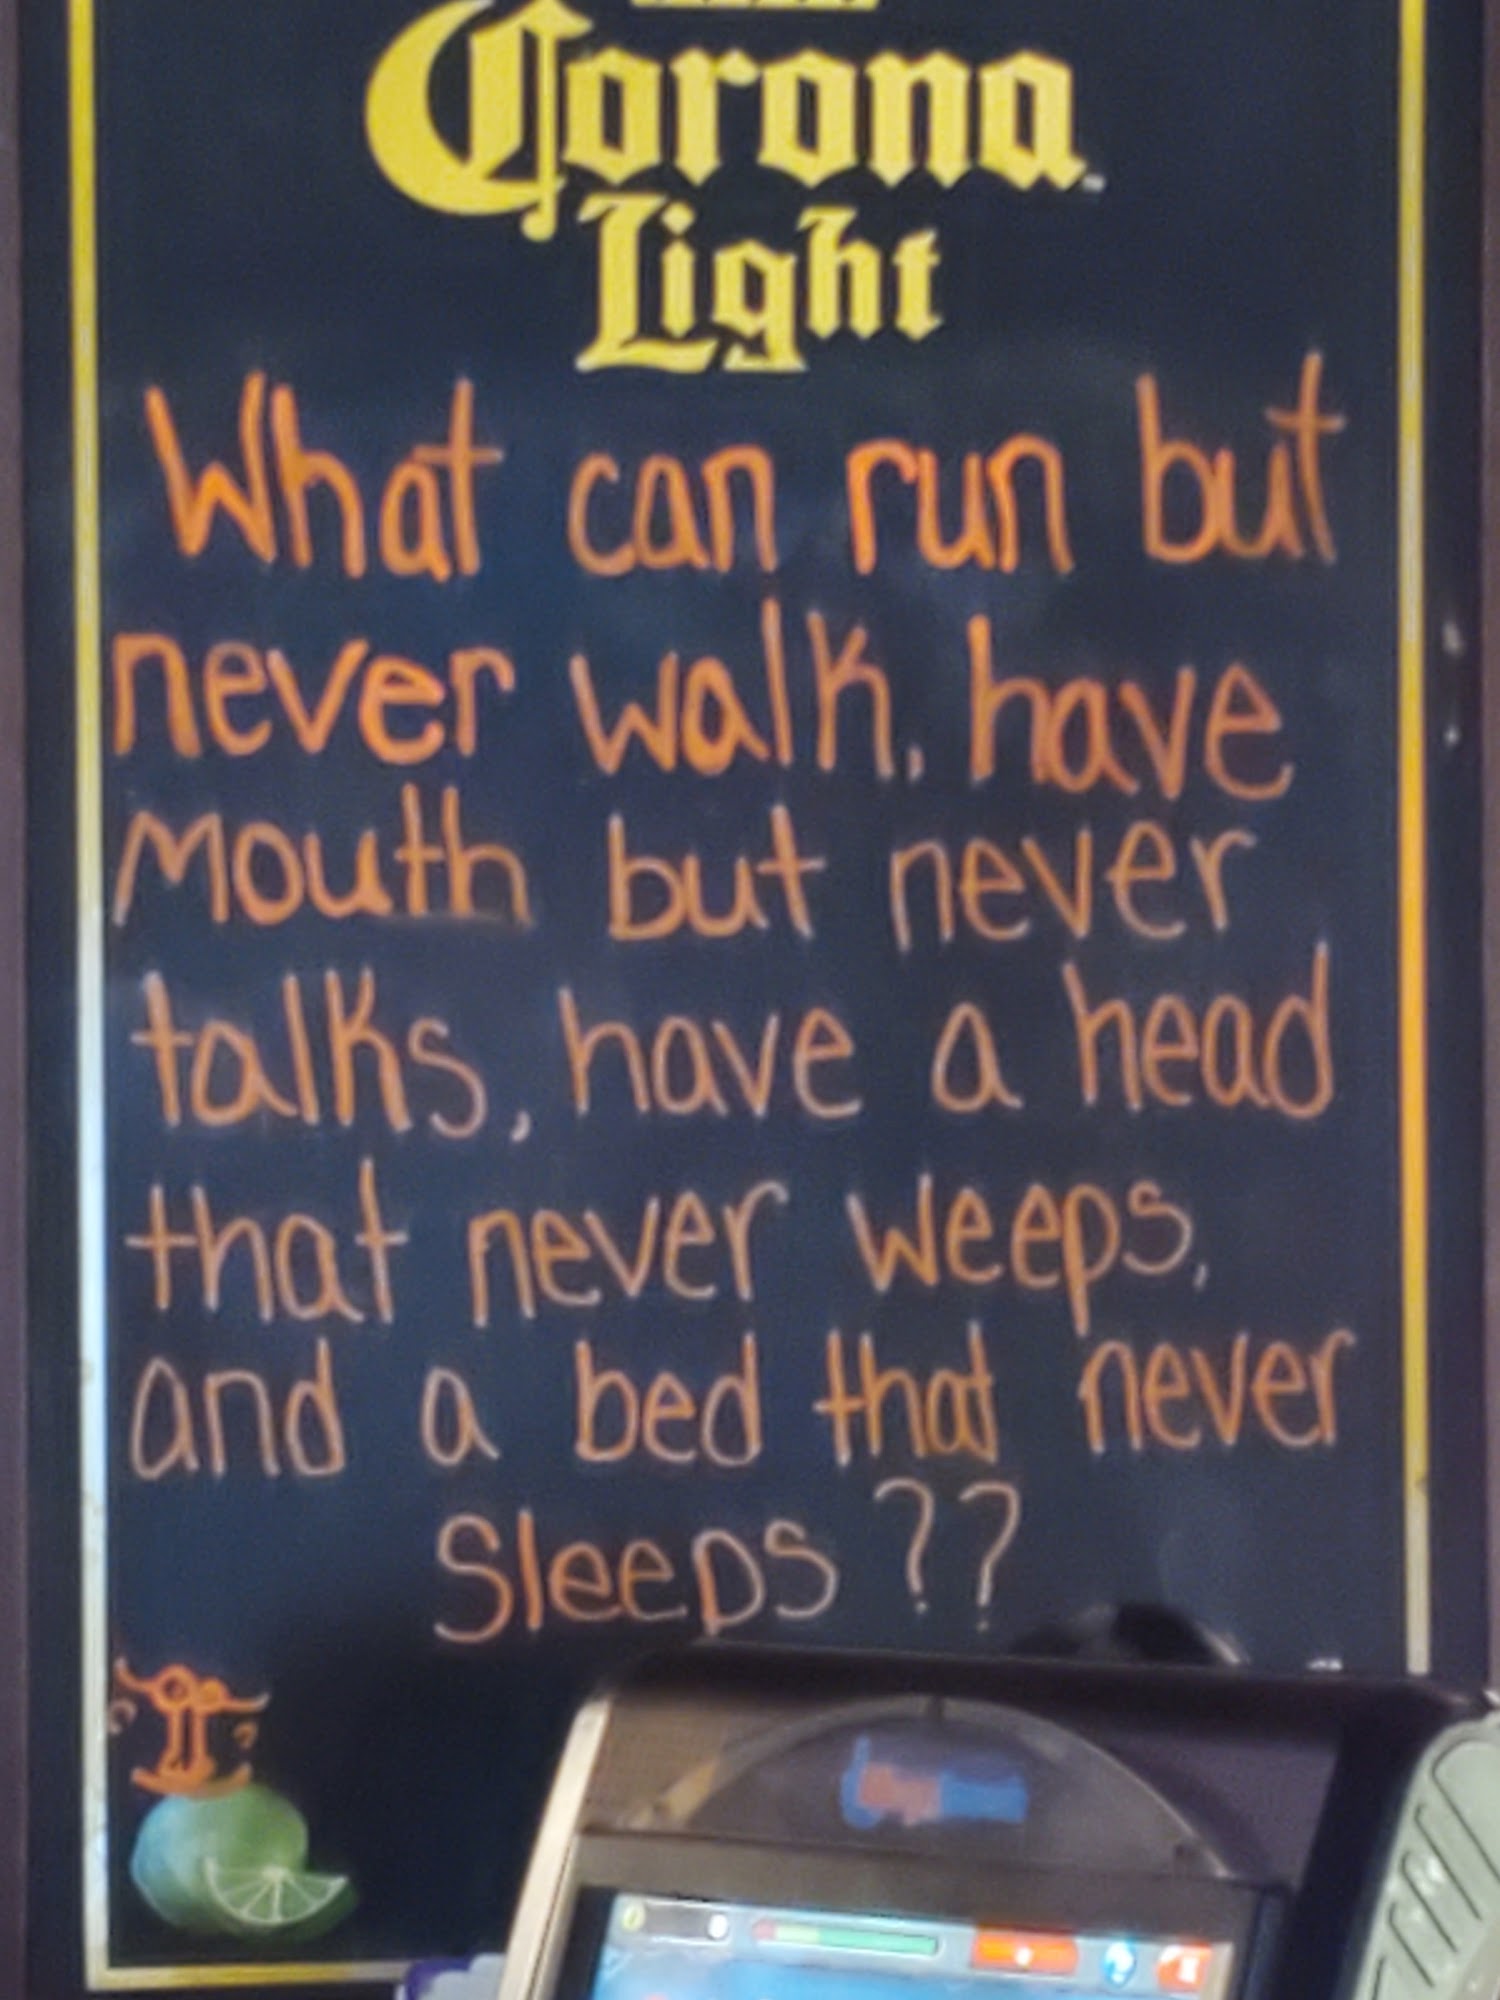 Corona
Light
What can run but
never walk, have
mouth but never
talks, have a head
that never weeps,
and a bed that never
sleeps??